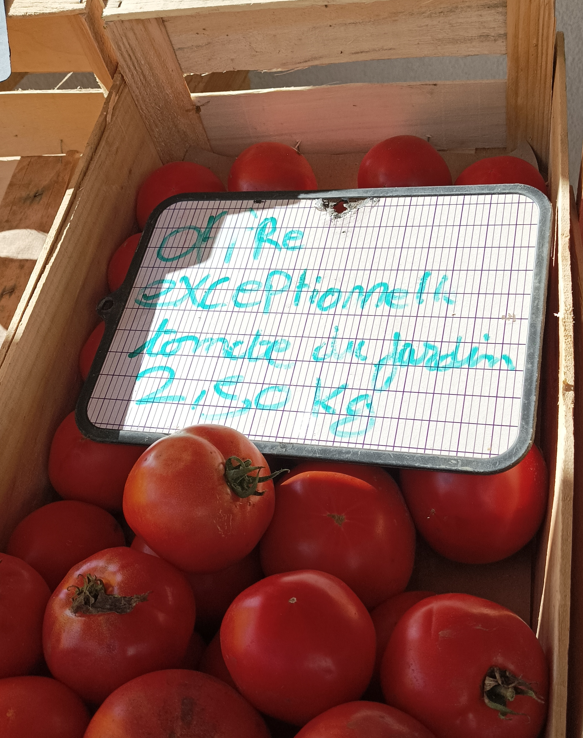 offre
exceptionnelle
tomate du jardin
2,50 kg